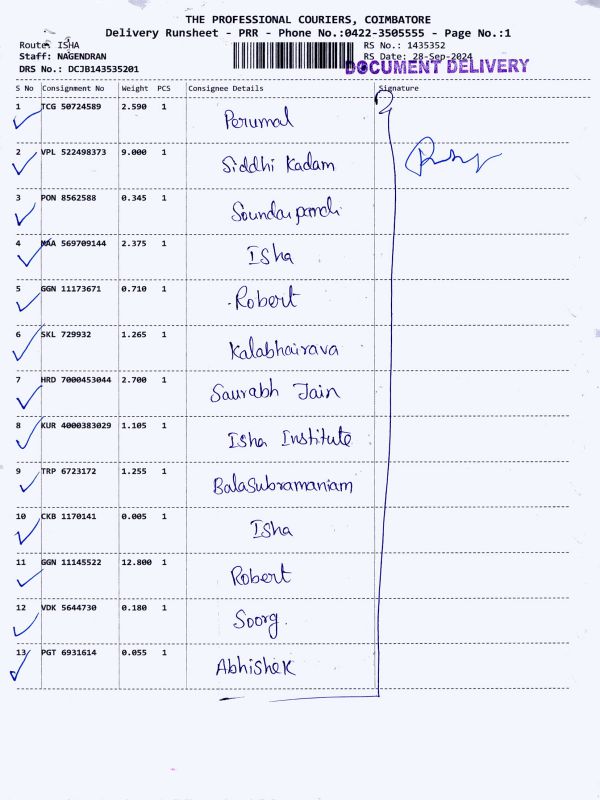 THE PROFESSIONAL COURIERS, COIMBATORE
Delivery Runsheet - PRR - Phone No.:0422-3505555 - Page No.:1
Route: ISHA RS No.: 1435352
Staff: NAGENDRAN RS Date: 28-Sep-2024
DRS No.: DCJB143535201 DOCUMENT DELIVERY
S No Consignment No Weight PCS Consignee Details Signature
1 TCG 50724589 2.590 1 Perumal
2 VPL 522498373 9.000 1 Siddhi Kadam
3 PON 8562588 0.345 1
4 MAA 569709144 2.375 1 Isha
5 GGN 11173671 0.710 1 Robert
6 SKL 729932 1.265 1 Kalabhairava
7 HRD 7000453044 2.700 1 Saurabh Jain
8 KUR 4000383029 1.105 1 Isha Institute
9 TRP 6723172 1.255 1 BalaSubramaniam
10 CKB 1170141 0.005 1 Isha
11 GGN 11145522 12.800 1 Robert
12 VDK 5644730 0.180 1 Soorg.
13 PGT 6931614 0.055 1 Abhishek